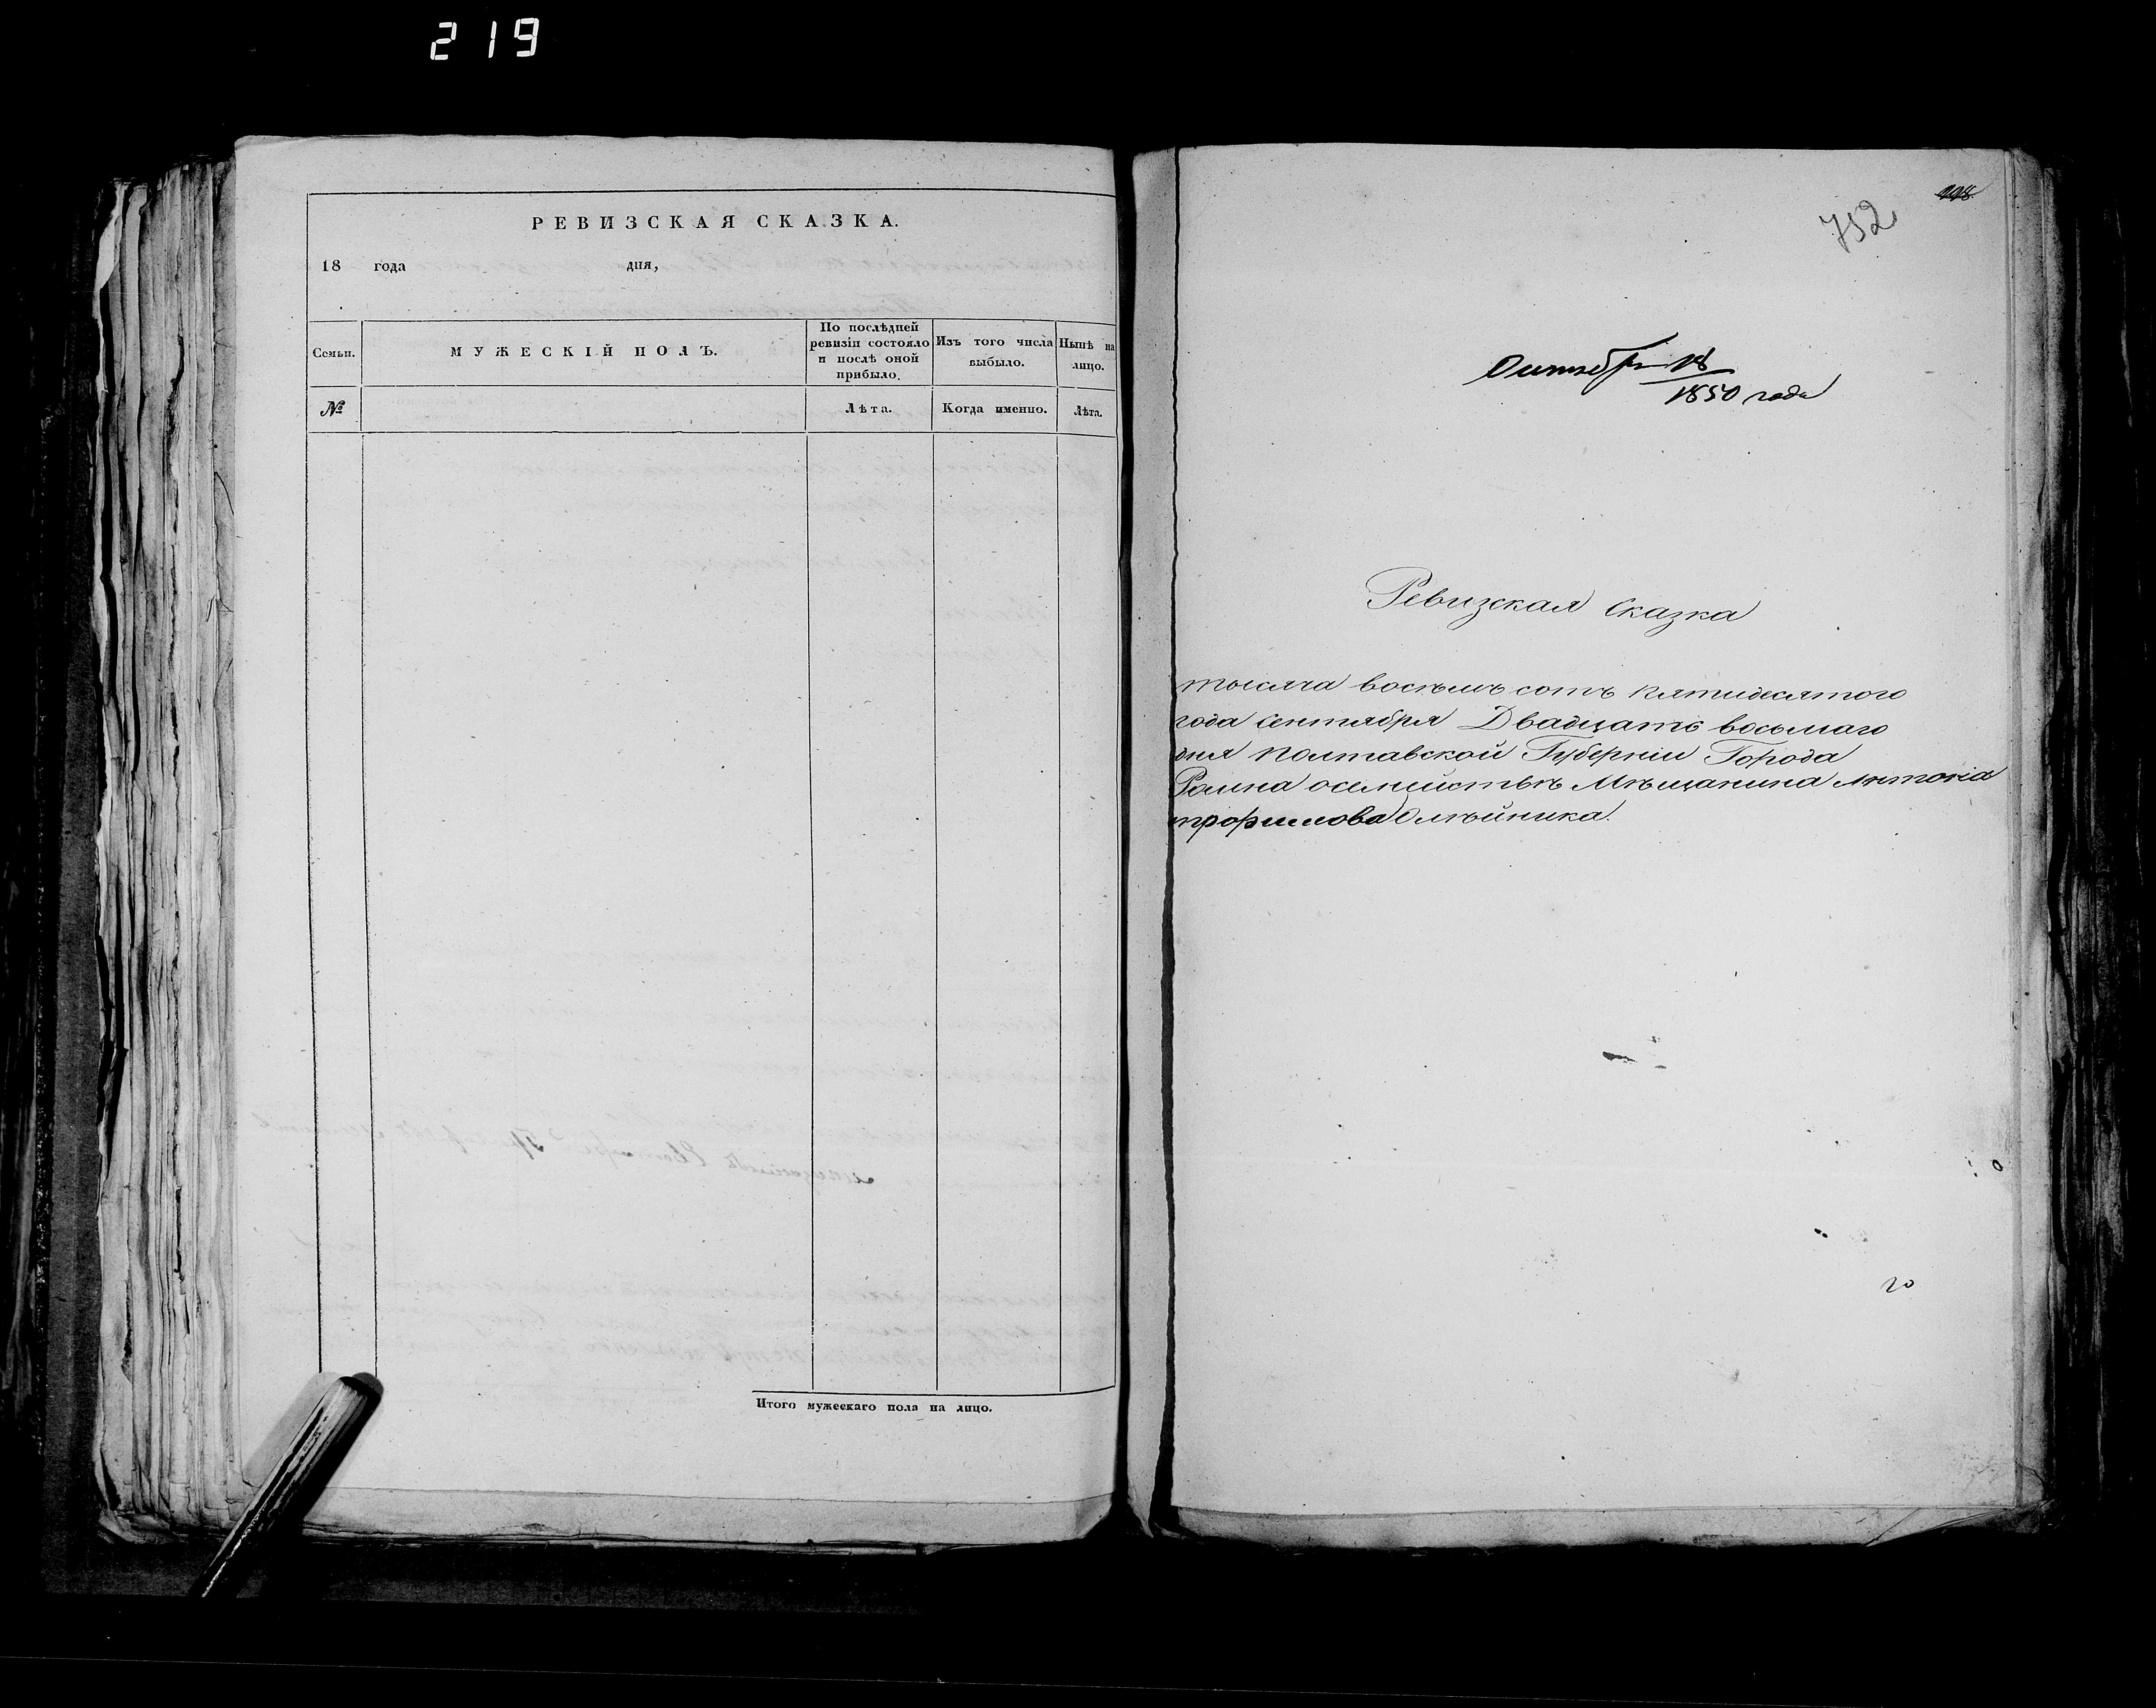 219
РЕВИЗСКАЯ СКАЗКА.
18 года дня,
Семьи.
МУЖЕСКІЙ ПОЛЪ.
По послѣдней ревизіи состояло и послѣ оной прибыло.
Изъ того числа выбыло.
Нынѣ на лицо.
№
Лѣта.
Когда именно.
Лѣта.
Итого мужескаго пола на лицо.
752
Октября 18
1850 года
Ревизская Сказка
тысяча восѣмъ сотъ пятидесятого
года Сентября Двадцать восьмаго
дня Полтавской Губерніи Города
Ромна осемействѣ Мѣщанина Антонія
трофимова Олѣйника.
го